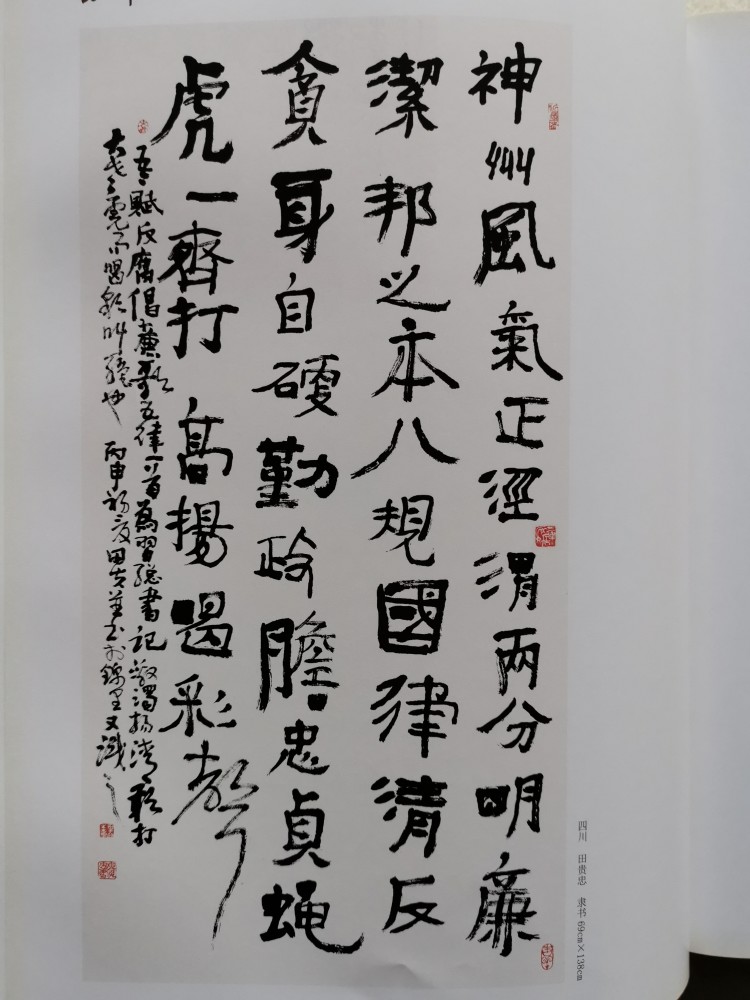 神州風氣正涇渭兩分明廉
潔邦之本八規國律清反
貪身自硬勤政膽忠貞蝇
虎一齊打高揚喝彩聲
吾賦反腐倡廉歌五律一首為習總書記激濁揚清敢打
大老虎而喝彩叫也 丙申初夏田貴忠書於錦里又識
四川 田贵忠 隶书 69cm×138cm